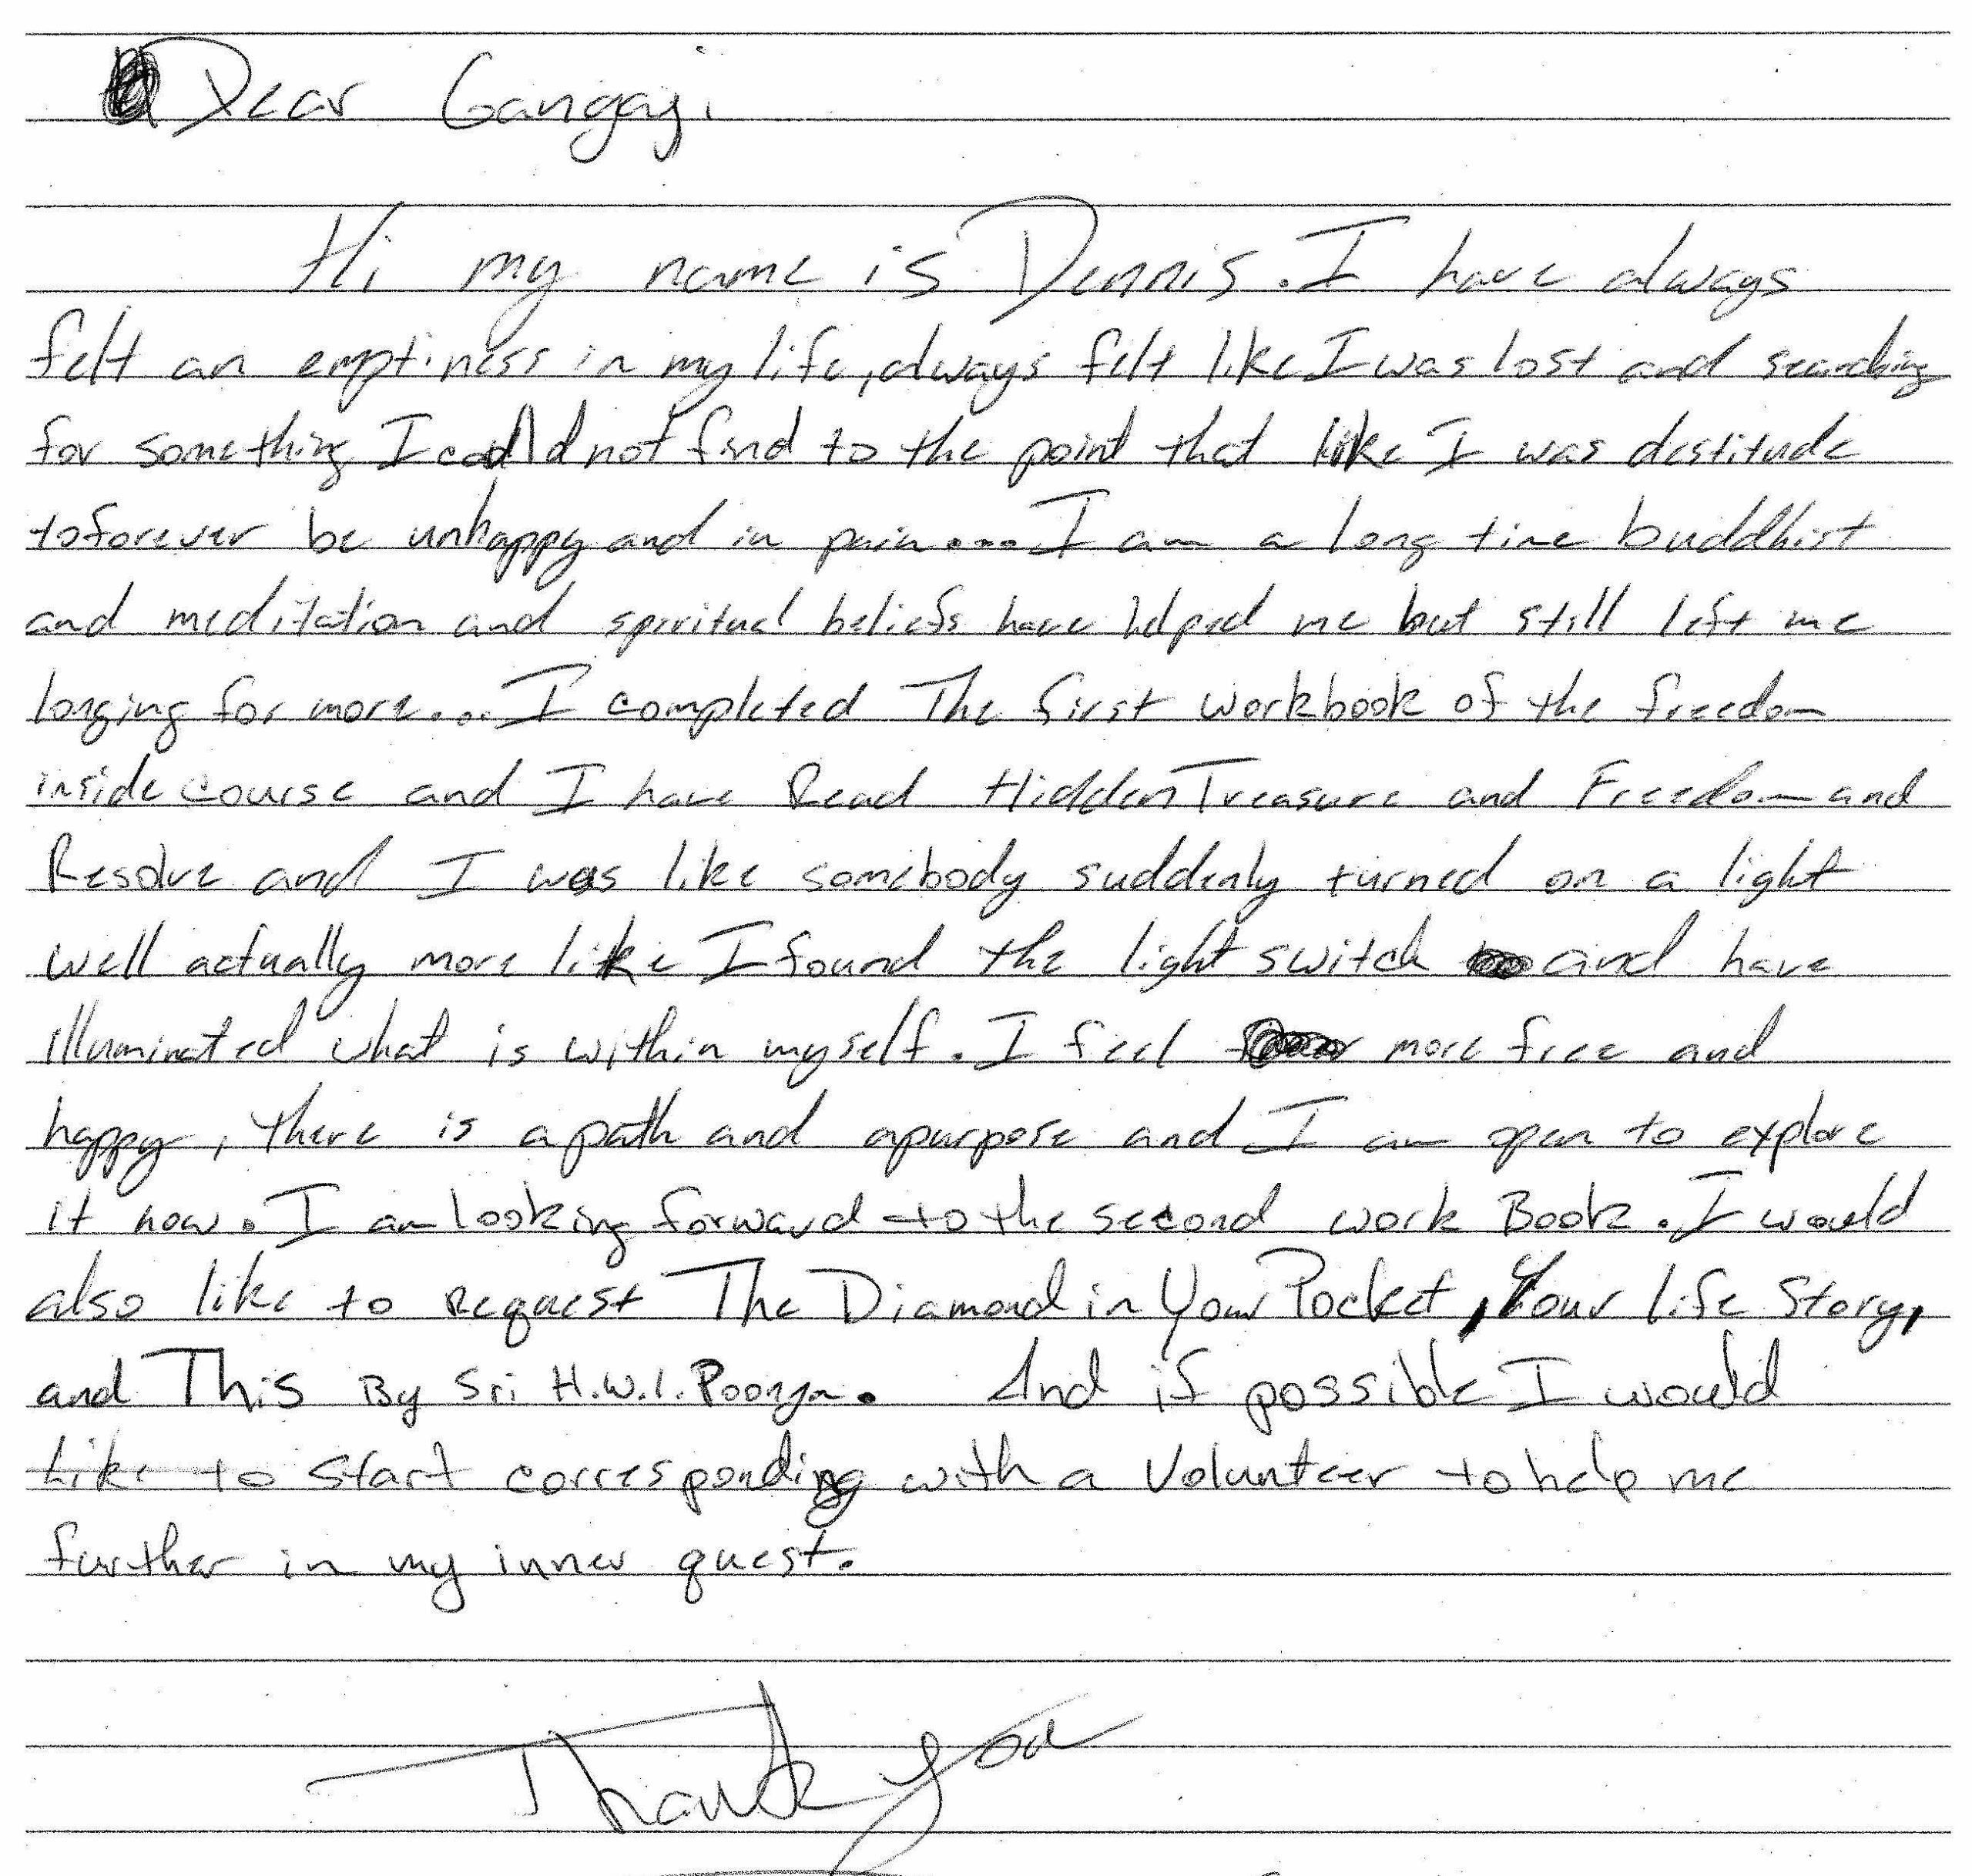 Dear Gangaji
Hi my name is Dennis. I have always
felt an emptiness in my life, always felt like I was lost and searching
for something I could not find to the point that like I was destitude
to forever be unhappy and in pain.... I am a long time buddhist
and meditation and spiritual beliefs have helped me but still left me
longing for more.... I completed The first workbook of the freedom
inside course and I have Read Hidden Treasure and Freedom and
Resolve and I was like somebody suddenly turned on a light
well actually more like I found the light switch and have
illuminated what is within myself. I feel more free and
happy, there is a path and a purpose and I am open to explore
it now. I am looking forward to the second work Book. I would
also like to Request The Diamond in Your Pocket, Your life Story,
and This By Sri H.W.L. Poonja. And if possible I would
Like to start corresponding with a Volunteer to help me
further in my inner quest.
Thank you